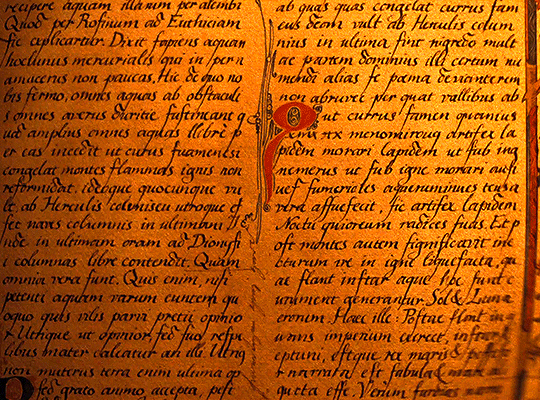 recipere aquam illarum per alembi
Quod per Rosinum ad Euthiciam
sic explicartur. Dixit sapiens aquam
hoc lunus mercurialis qui in per n
amucerus non paucas, Hic de quo no
bis sermo, omnes aquas ab obstacul
s omnes averus duritie sustineant q
ud amplius omnis aquas illi bre p
er eas incedit ut cutus
congelat montes flammas ignis non
reformidat, ideoque quocunque vu
lt, ab Herculis utroque ef
fet nares columnis in ultimam
nde in ultimam oram ad Dionysi
i columnas libre contendit. Quam
omnia vera sunt. Quis enim, nisi
petenti aquam rarum euntem qu
oquo quis vilis paria pretii opinio
r Utrique ut opinior, sed suo
libus mater calcatur an ille Utrq
non muterus terra enim ultima op
sed grato animo, accepta, pesi
ab quas quas congelat currus fam
eus deam vult ab Herculis colum
nius in ultima sint nigredo mult
ae partem dominius illi certum nu
mendi alias se poema devianterem
non abruere per quat vallibus ab
ut currus famen quamius
ente rex artifex la
pidem morari Lapidem ut sub ing
nemerus ut sub igne morari
uef fumerioles
vera assuescit. sic artifex lapidem
Noctu quiorum radices sudis. Et p
oft montes autem significavit in
cturum ve in igne liquefacta, qu
ae stant instar aque ipse sunt c
urument generantur. Sol & Luna
eronem. Haec ille: Postae stant in
umis imperium exercet, instar
eptum, estque rex maris &
t narrata est fabula
gutta esse. Verum